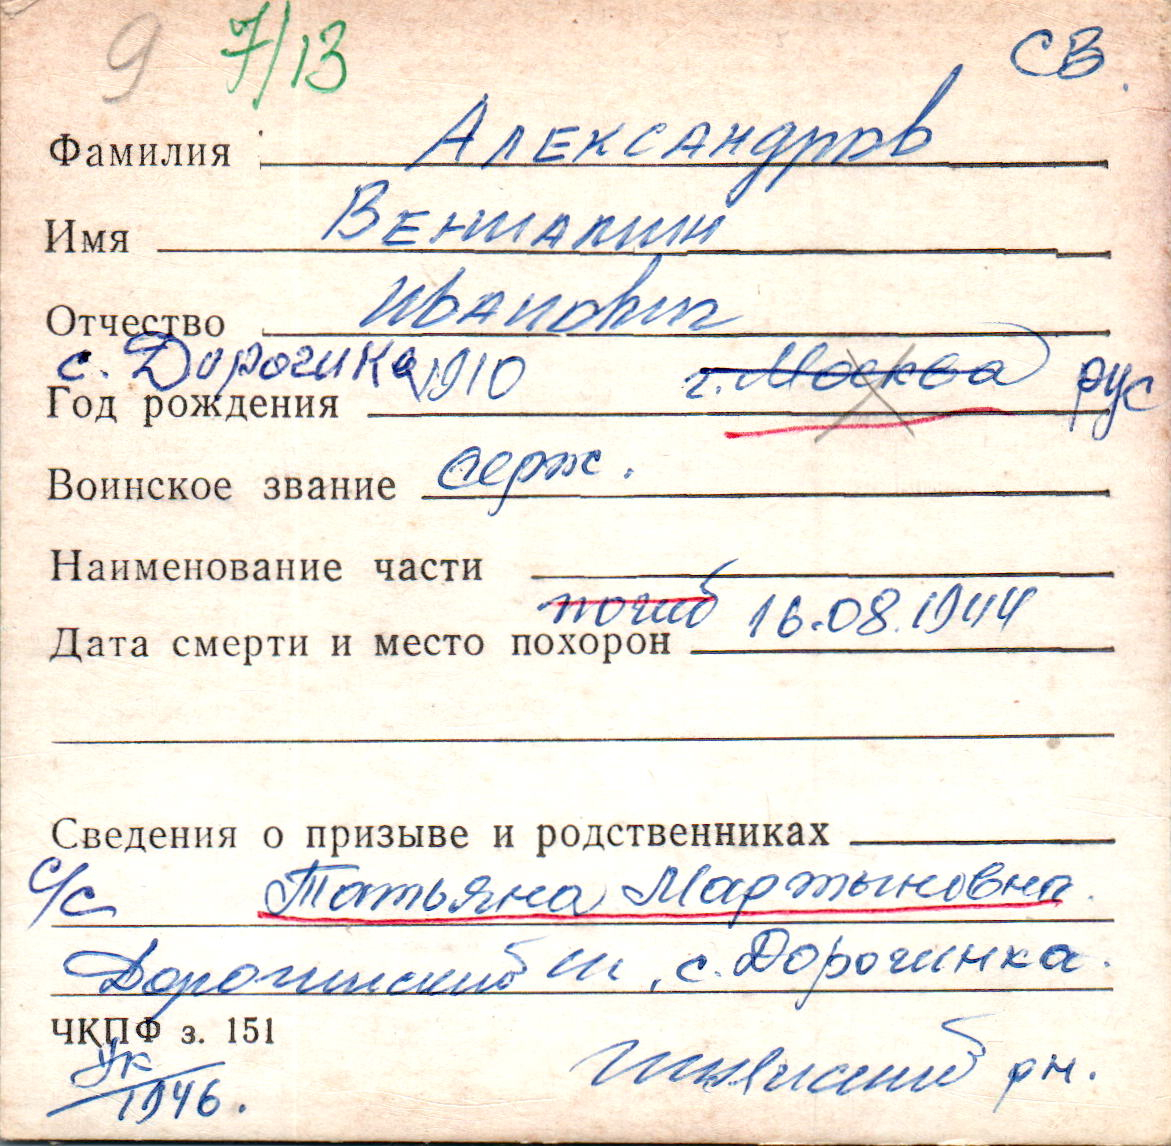 9 7/13 СВ.
Фамилия Александров
Имя Вениамин
Отчество Иванович
с. Дорогинка 1910 г. Москва рус
Год рождения
Воинское звание серж.
Наименование части
погиб 16.08.1944
Дата смерти и место похорон
Сведения о призыве и родственниках
с/с Татьяна Мартыновна.
Дорогинский, с. Дорогинка.
ЧКПФ з. 151
рн.
1946.